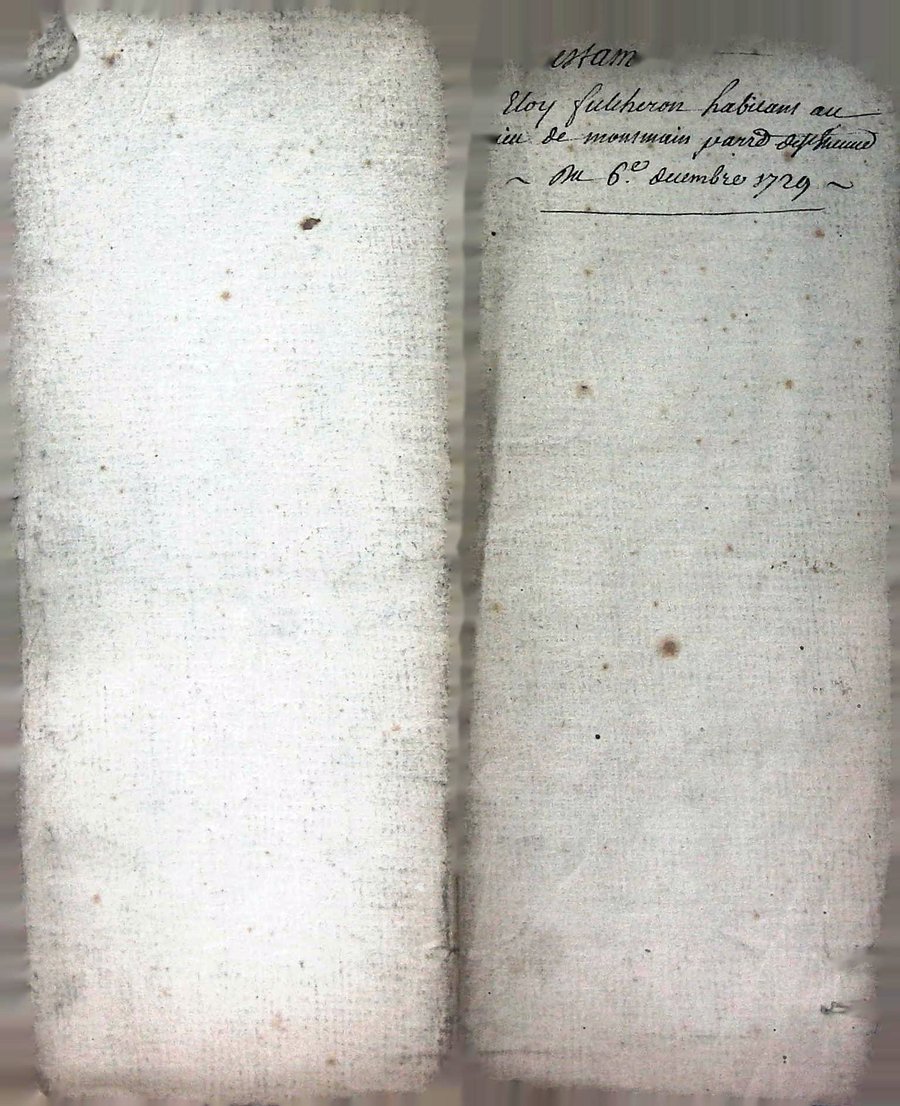 estam
Eloy fulcheron habitant au
ieu de montmain parrd
~ Du 6.e decembre 1729 ~